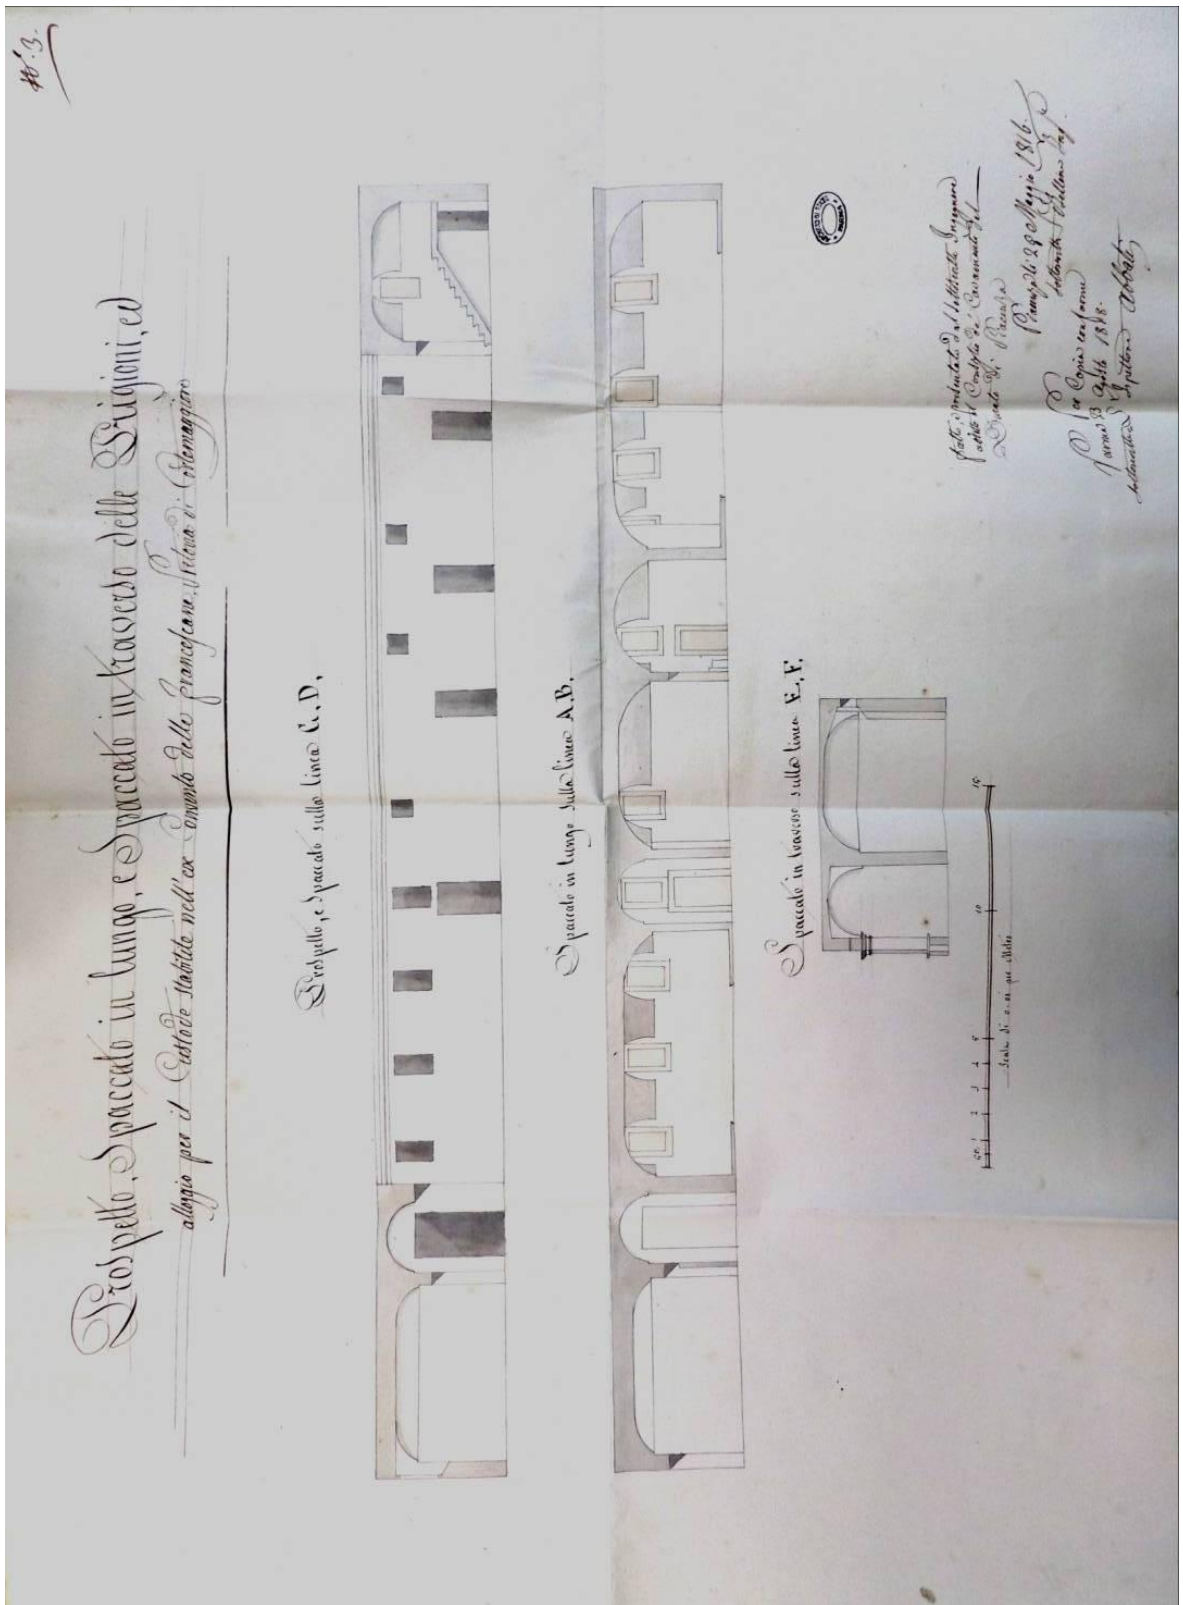 N.º 3.
Prospetto, Spaccato in lungo, e Spaccato in traverso delle Prigioni, ed
alloggio per il Custode stabilite nell'ex Convento delle Francescane, Pretura di Cortemaggiore
Prospetto, e Spaccato sulla linea C. D.
Spaccato in lungo sulla linea A. B.
Spaccato in traverso sulla linea E. F.
1 2 3 4 5 10 15
Scala di 0.01 per Metro
fatto, e presentato dal sottoscritto Ingegnere
Consiglio de'
Ducato di Piacenza
Piacenza li 28 Maggio 1816.
Per Copia conforme
Parma Agosto 1818.
Ispettore
ARCHIVIO DI STATO
PARMA